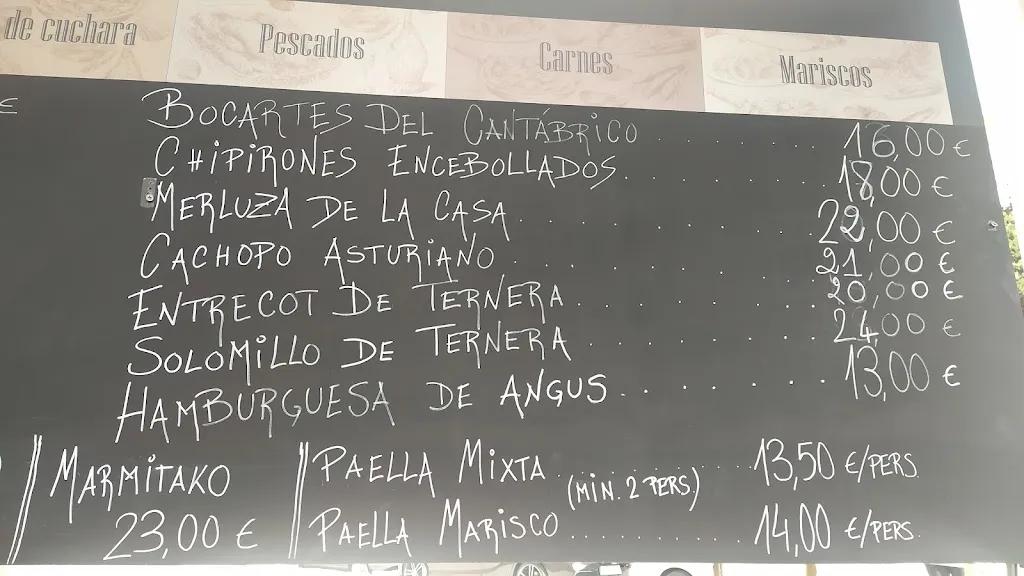 de cuchara Pescados Carnes Mariscos
€
BOCARTES DEL CANTÁBRICO . . . . . . . 16,00 €
CHIPIRONES ENCEBOLLADOS . . . . . . . 18,00 €
MERLUZA DE LA CASA . . . . . . . . 22,00 €
CACHOPO ASTURIANO . . . . . . . . 21,00 €
ENTRECOT DE TERNERA . . . . . . . . 20,00 €
SOLOMILLO DE TERNERA . . . . . . . . 24,00 €
HAMBURGUESA DE ANGUS . . . . . . . . 13,00 €
MARMITAKO
23,00 €
PAELLA MIXTA . . . . . . . . 13,50 €/PERS.
(MIN. 2 PERS.)
PAELLA MARISCO . . . . . . . . 14,00 €/PERS.